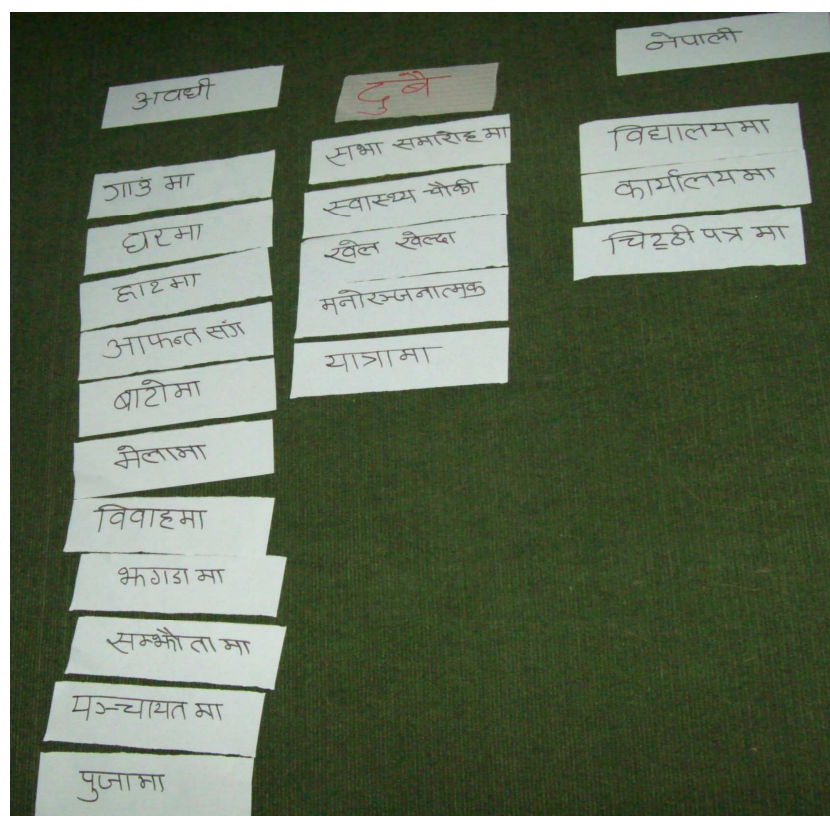 अवधी
गाउं मा
घरमा
हाटमा
आफन्त संग
बाटोमा
मेलामा
विवाहमा
झगडा मा
सम्झौता मा
पञ्चायत मा
पुजामा
दुबै
सभा समारोह मा
स्वास्थ्य चौकी
खेल खेल्दा
मनोरञ्जनात्मक
यात्रामा
नेपाली
विद्यालयमा
कार्यालयमा
चिट्ठी पत्र मा